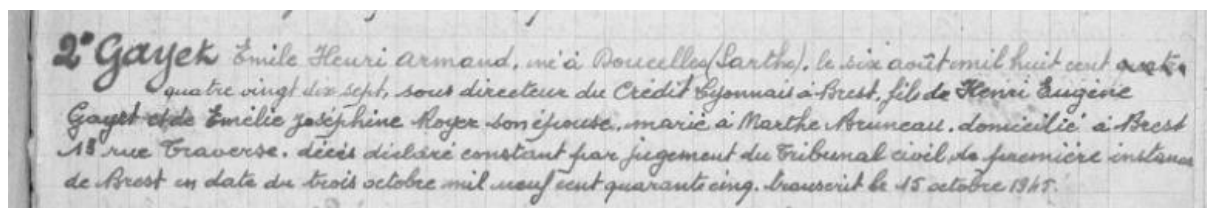 2° Gayet Emile Henri Armand, né à Doucelles (Sarthe), le six août mil huit cent
quatre vingt dix sept, sous directeur du Crédit Lyonnais à Brest, fils de Henri Eugène
Gayet et de Emélie Joséphine Royer son épouse, marié à Marthe Bruneau, domicilié à Brest
18 rue Traverse, décès déclaré constant par jugement du Tribunal civil de première instance
de Brest en date du trois octobre mil neuf cent quarante cinq. transcrit le 15 octobre 1945.